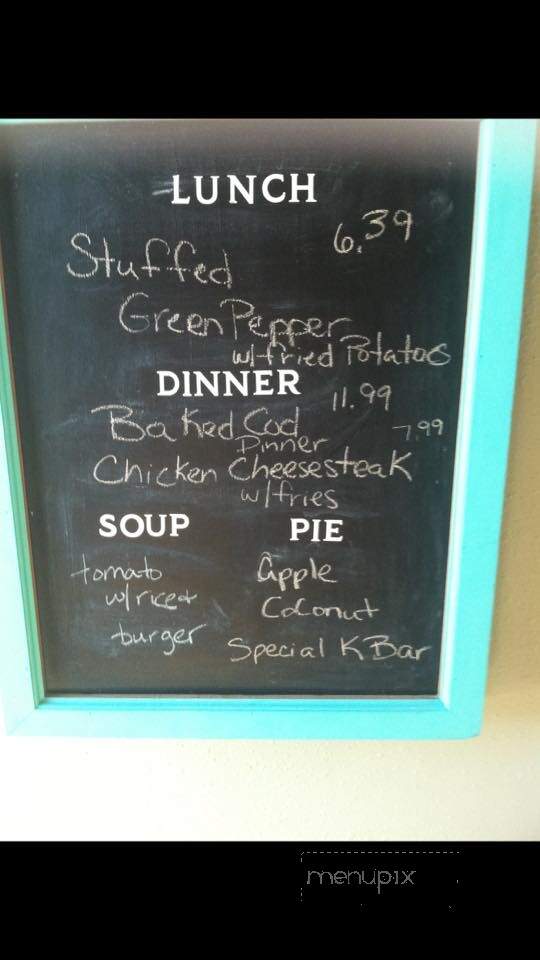 LUNCH
6.39
Stuffed
Green Pepper
w/fried Potatoes
DINNER
11.99
Baked Cod
Dinner
7.99
Chicken Cheesesteak
w/fries
SOUP
tomato
w/rice +
burger
PIE
Apple
Coconut
Special K Bar
menupix